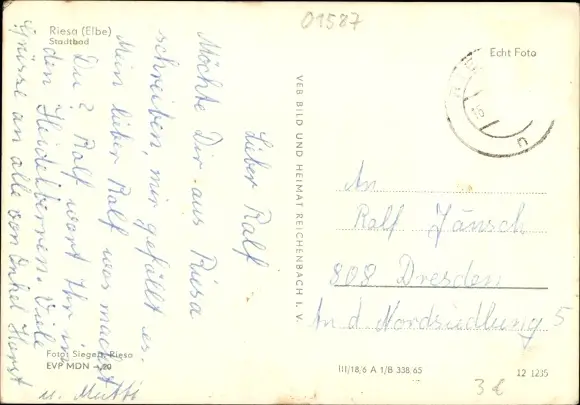 01587
Riesa (Elbe)
Stadtbad
Echt Foto
Lieber Ralf
Möchte Dir aus Riesa
schreiben, mir gefällt es.
Mein lieber Ralf was machst
Du? Ralf wart Ihr in
den Heidelbeeren. Viele
Grüsse an alle von Onkel Horst
u. Mutti
VEB BILD UND HEIMAT REICHENBACH I. V.
An
Ralf Jänsch
808 Dresden
An d. Nordsiedlung 5
Foto: Siegert, Riesa
EVP MDN -,20
III/18/6 A 1/B 338 65
12 1235
3€